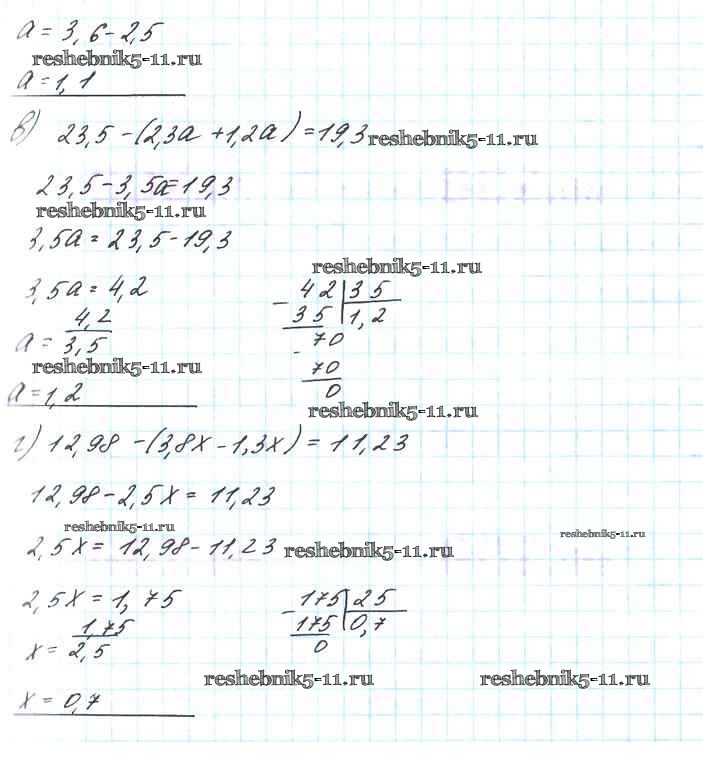 a = 3,6 - 2,5
reshebnik5-11.ru
a = 1,1
в) 23,5 - (2,3a + 1,2a) = 19,3
reshebnik5-11.ru
23,5 - 3,5a = 19,3
reshebnik5-11.ru
3,5a = 23,5 - 19,3
reshebnik5-11.ru
3,5a = 4,2
a = 4,2 / 3,5
reshebnik5-11.ru
a = 1,2
- 42 | 35
35 | 1,2
70
- 70
0
reshebnik5-11.ru
г) 12,98 - (3,8x - 1,3x) = 11,23
12,98 - 2,5x = 11,23
reshebnik5-11.ru
reshebnik5-11.ru
2,5x = 12,98 - 11,23
reshebnik5-11.ru
2,5x = 1,75
x = 1,75 / 2,5
- 175 | 25
175 | 0,7
0
reshebnik5-11.ru
reshebnik5-11.ru
x = 0,7